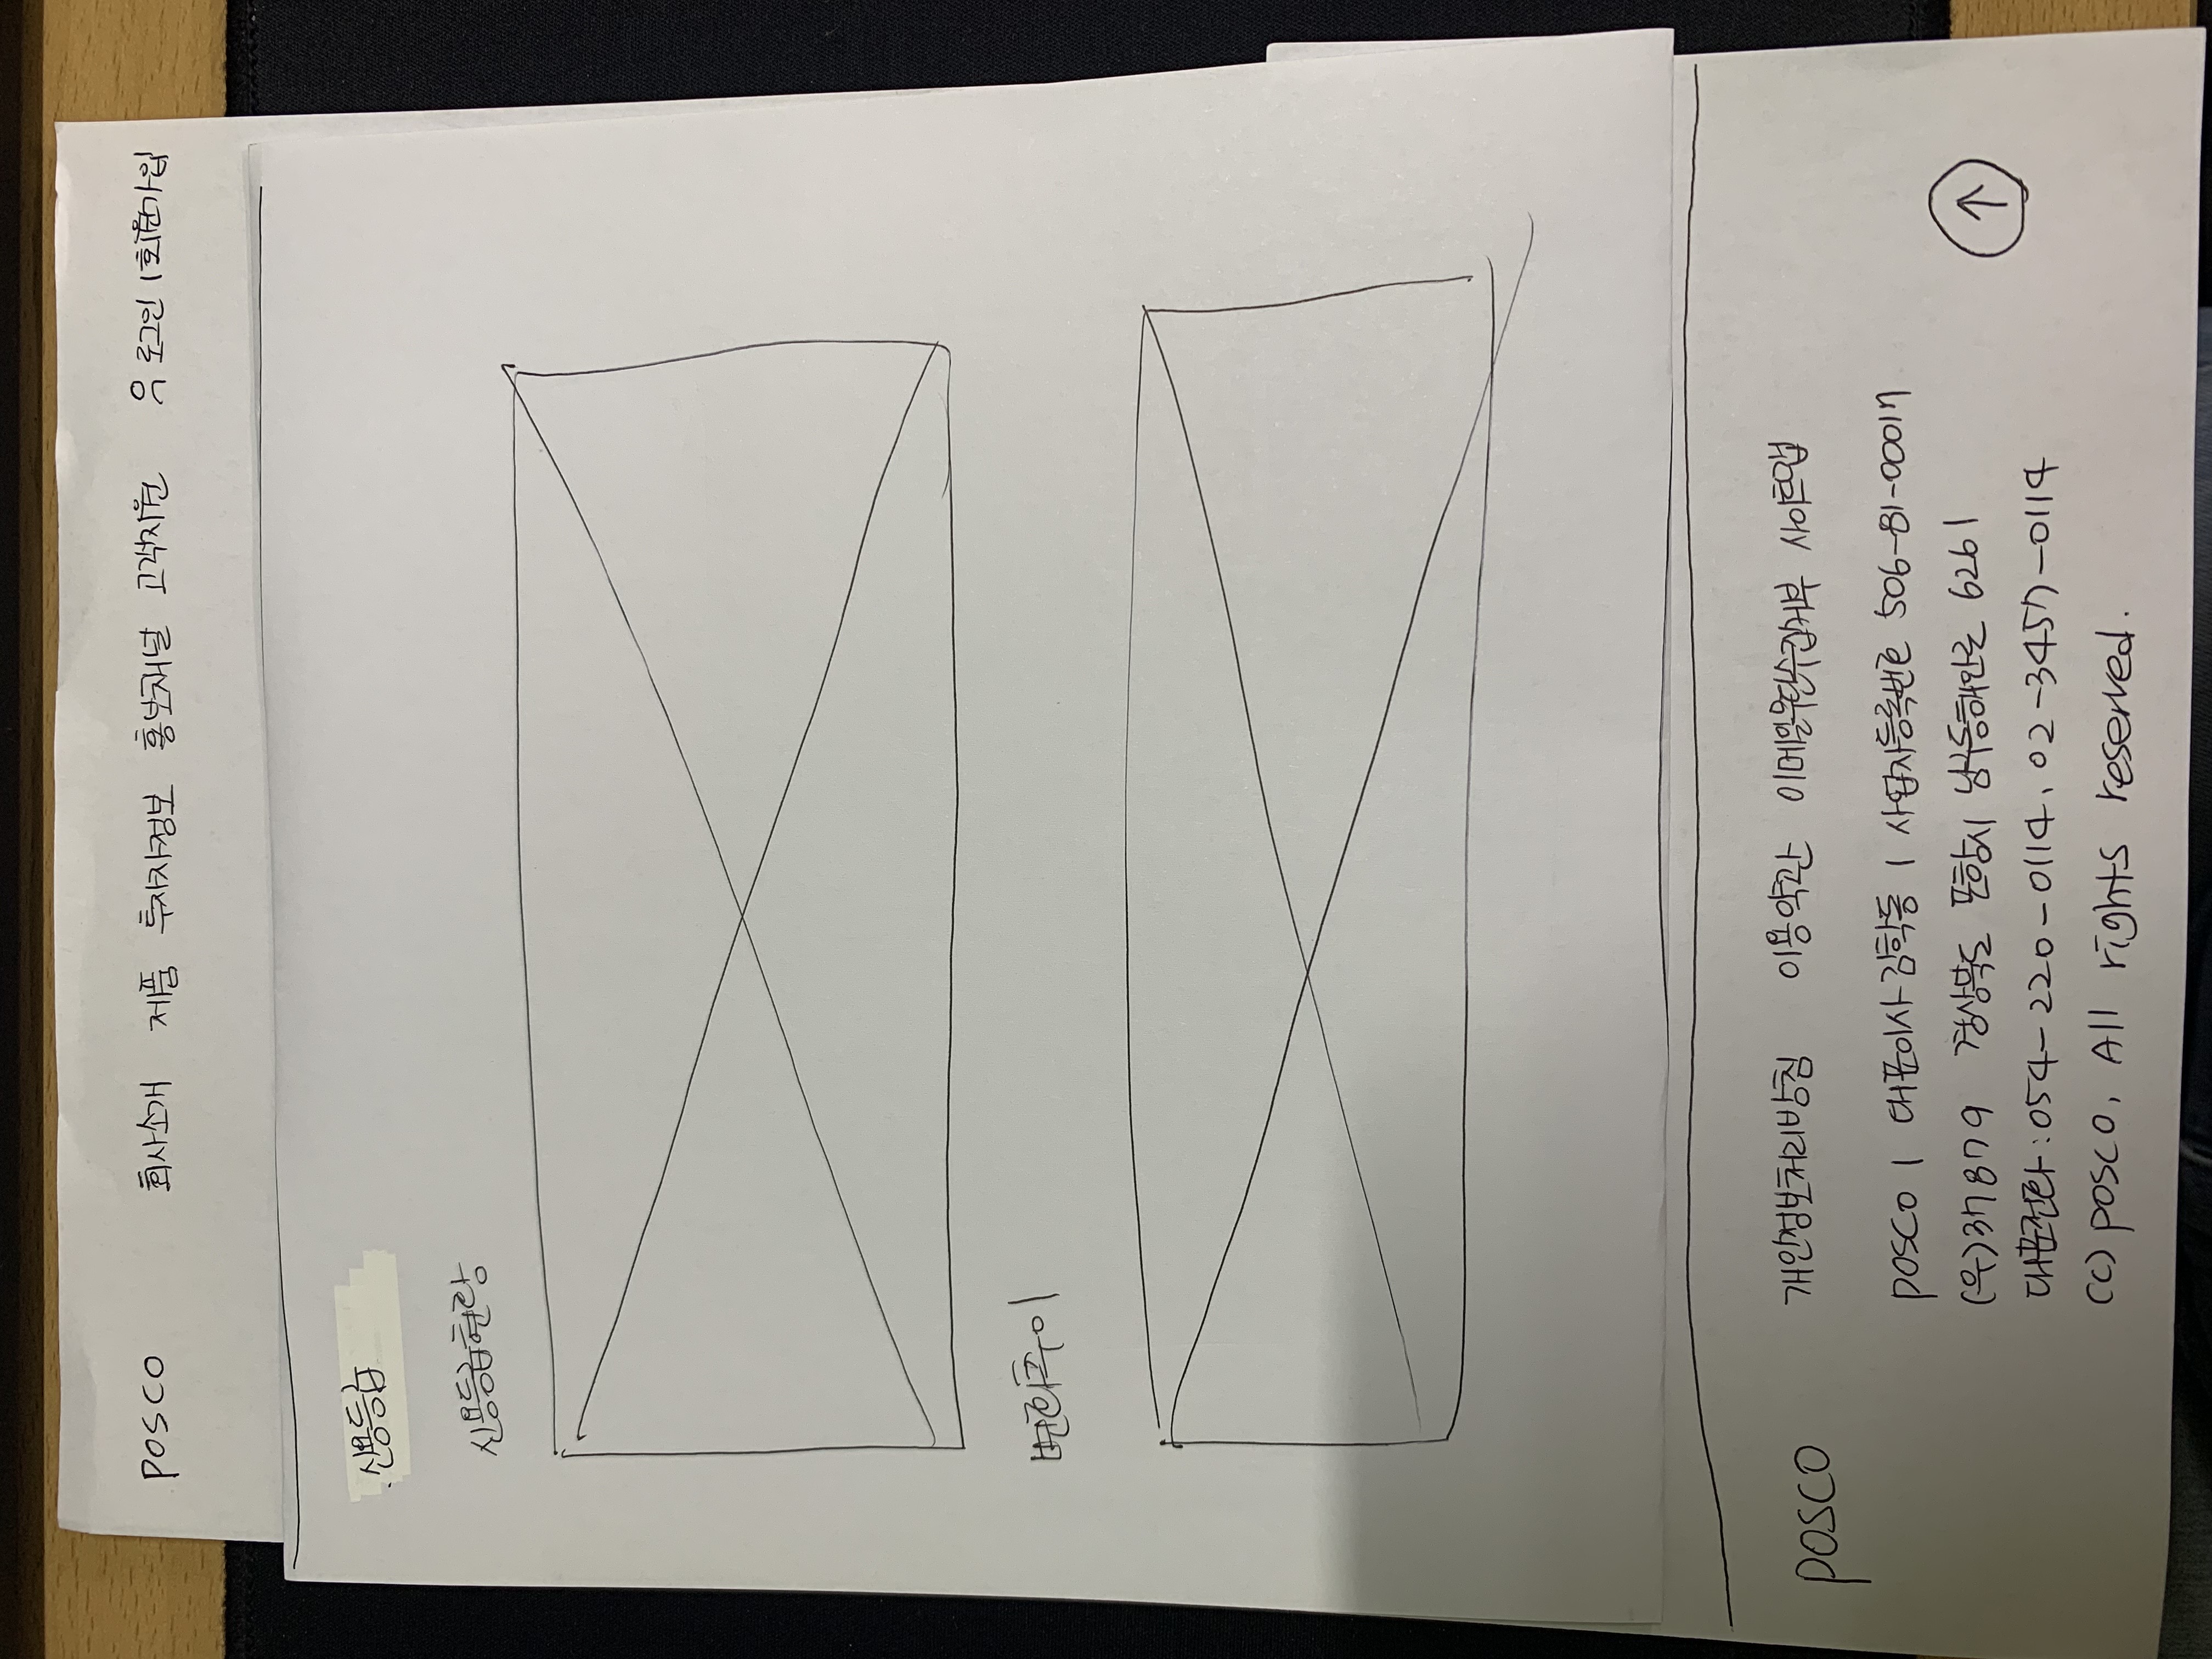 POSCO 회사소개 제품 투자자정보 홍보채널 고객지원 로그인 | 회원가입
신용등급
신용등급현황
변화추이
POSCO 개인정보처리방침 이용약관 이메일무단수집거부 사이트맵
POSCO | 대표이사 김학동 | 사업자등록번호 506-81-00017
(우)37879 경상북도 포항시 남구동해안로 6261
대표전화 : 054-220-0114, 02-3457-0114
(C) POSCO, All rights reserved.